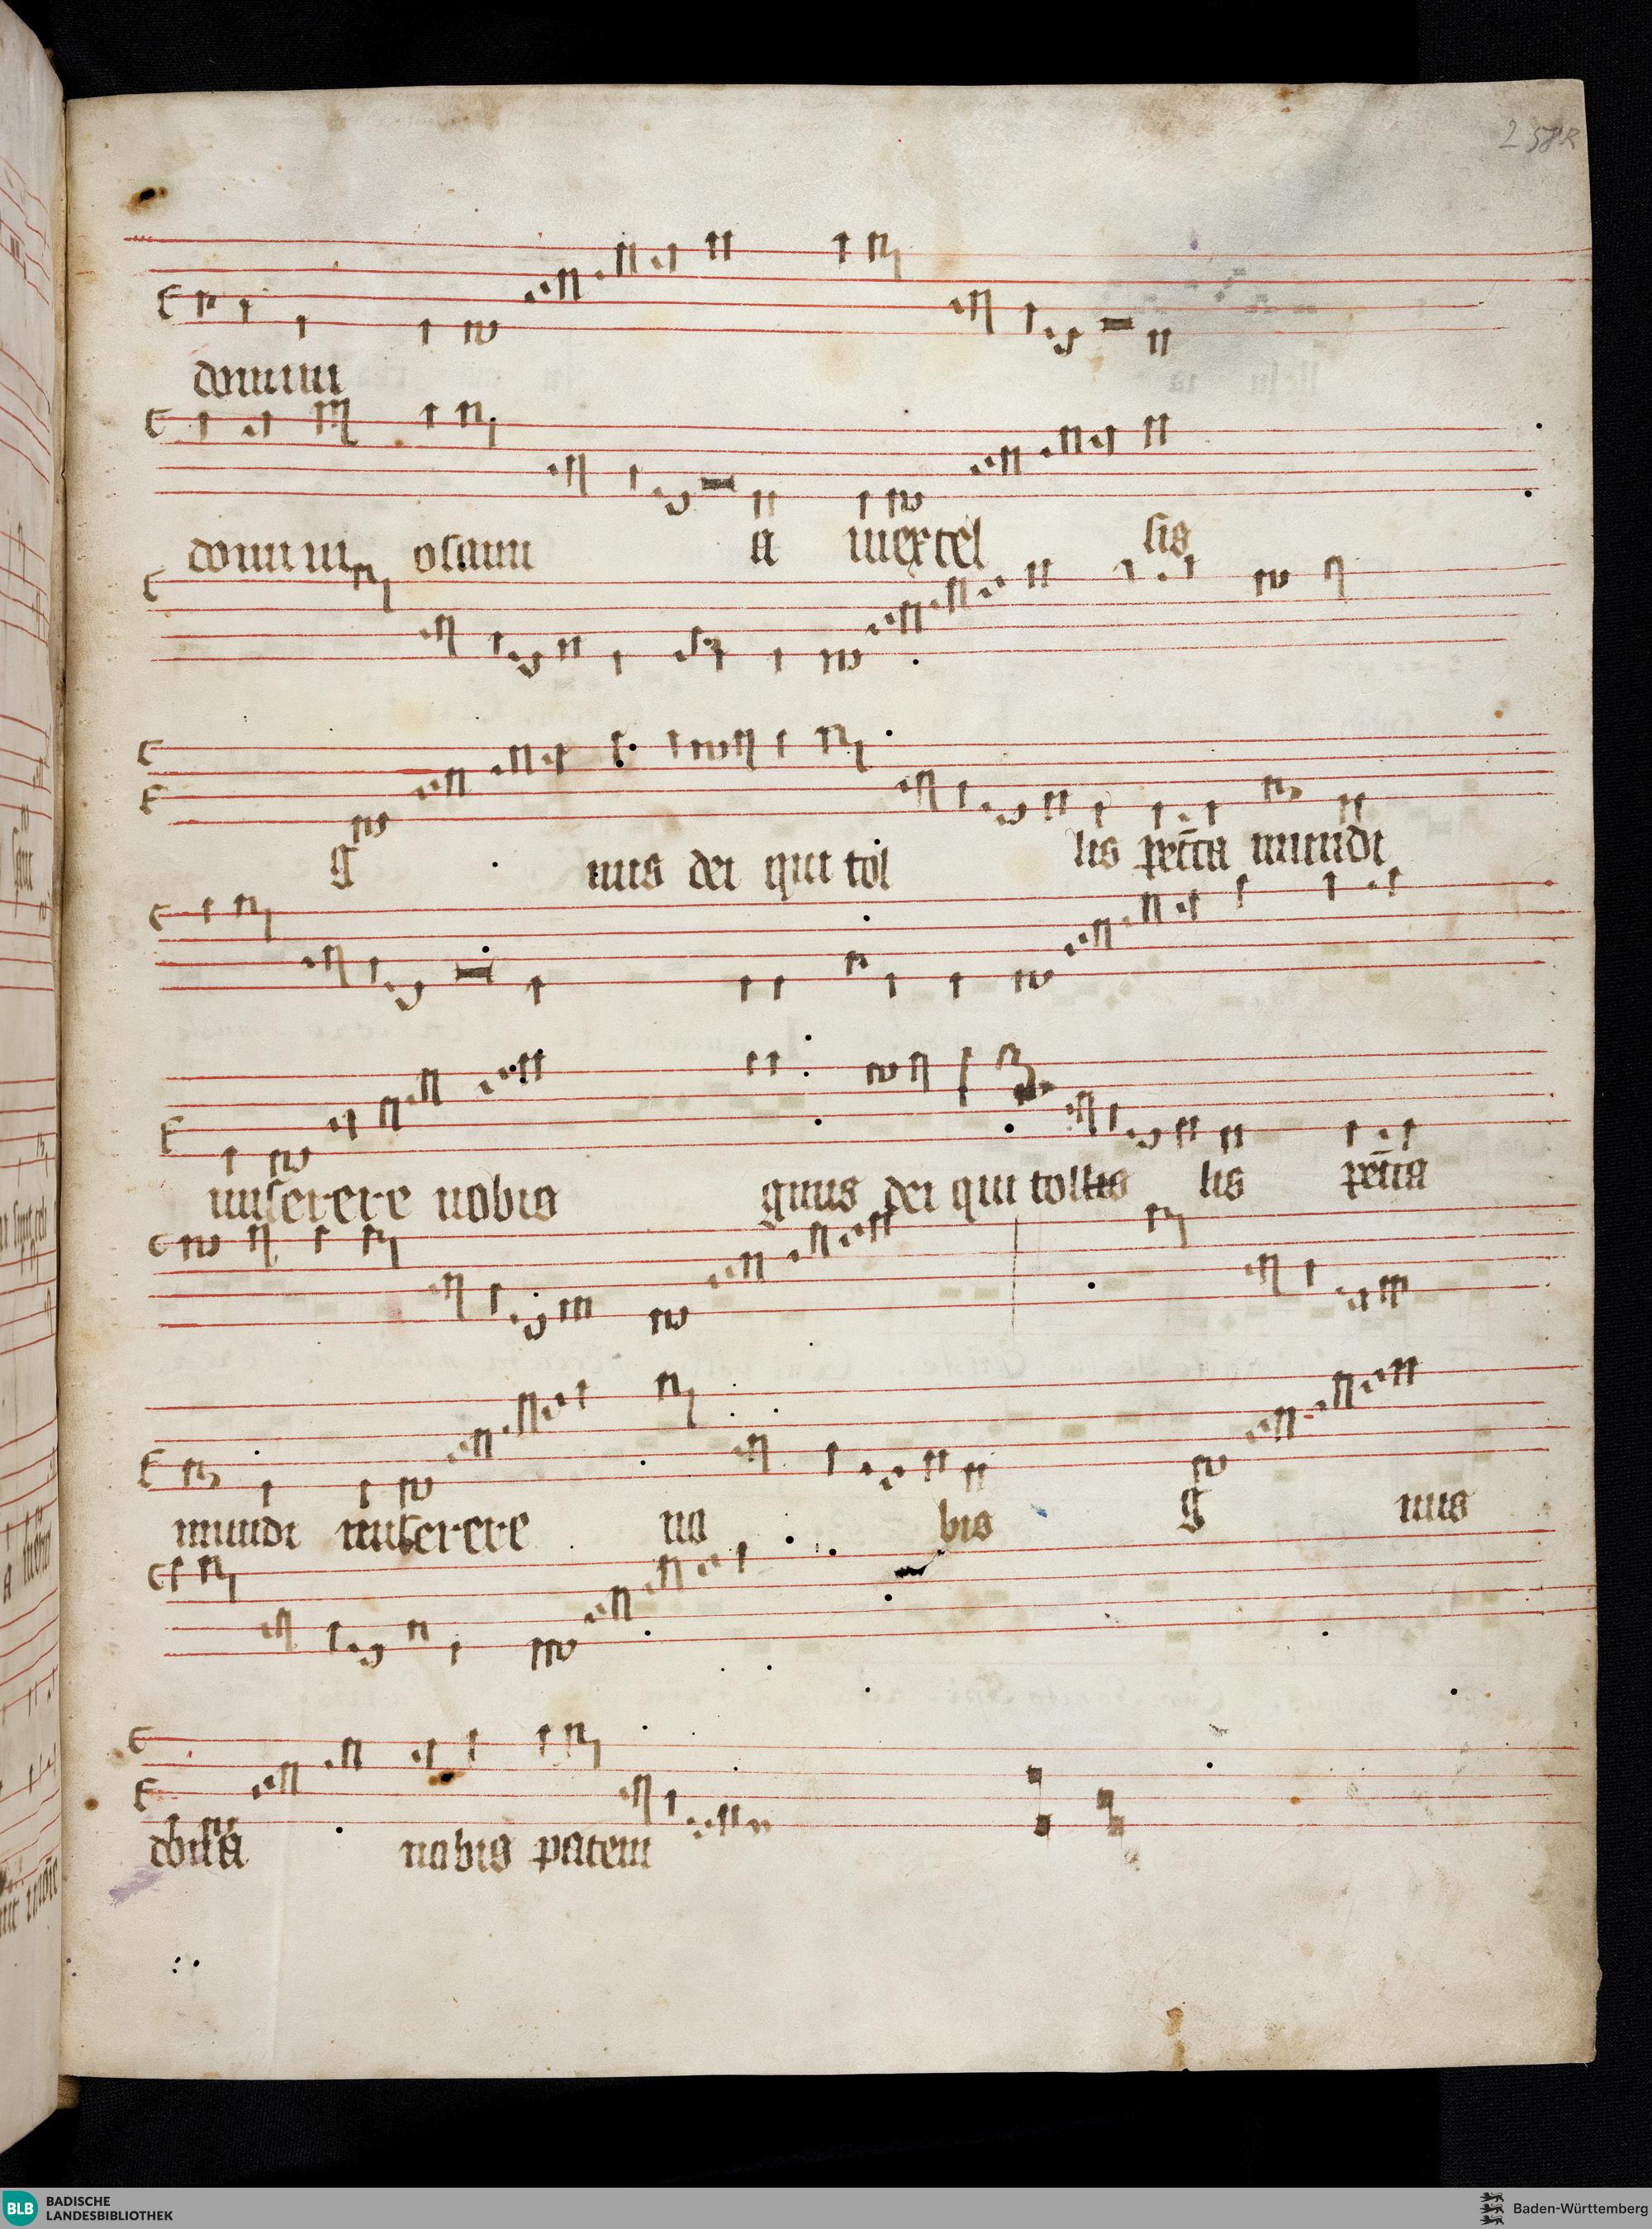 258R
domini
domini osann a inexcel sis
g nus dei qui tol lis pctā mundi
miserere nobis gnus dei qui tollis lis pctā
mundi miserere no bis g nus
dona nobis pacem
BLB BADISCHE LANDESBIBLIOTHEK
Baden-Württemberg